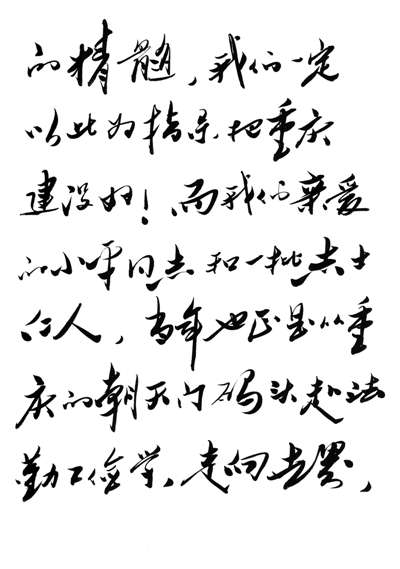 的精髓，我们一定
以此为指导把重庆
建设好！而我们亲爱
的小平同志和一批志士
仁人，当年也正是从重
庆的朝天门码头赴法
勤工俭学、走向世界，